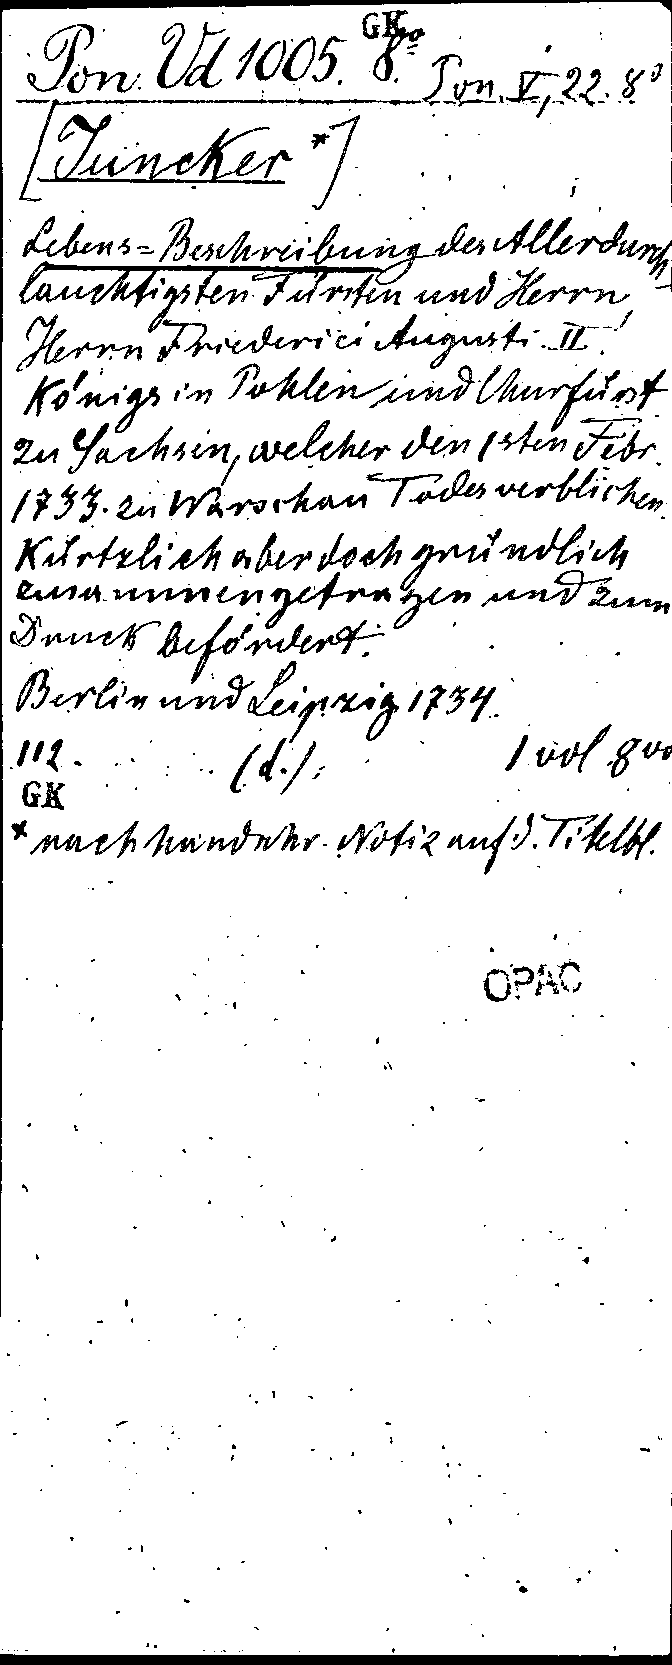 GK
Pon. Vd 1005. 8.vo Pon. V, 22. 8°
[Juncker *]
Lebens=Beschreibung des Allerdurch-
lauchtigsten Fürsten und Herrn,
Herrn Friederici Augusti II,
Königs in Pohlen und Churfürst
zu Sachsen, welcher den 1sten Febr.
1733. zu Warschau Todes verblichen.
Kürtzlich aber doch gründlich
zusammengetragen und zum
Druck befördert.
Berlin und Leipzig 1734.
112. (d.). 1 vol 8vo
GK
* nach handschr. Notiz auf d. Titelbl.
OPAC